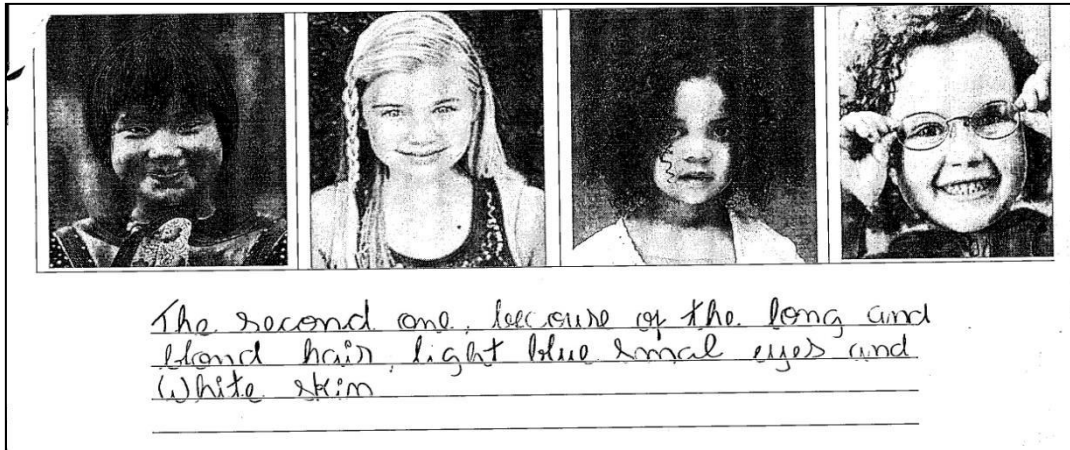 The second one, because of the long and
blond hair, light blue smal eyes and
White skin